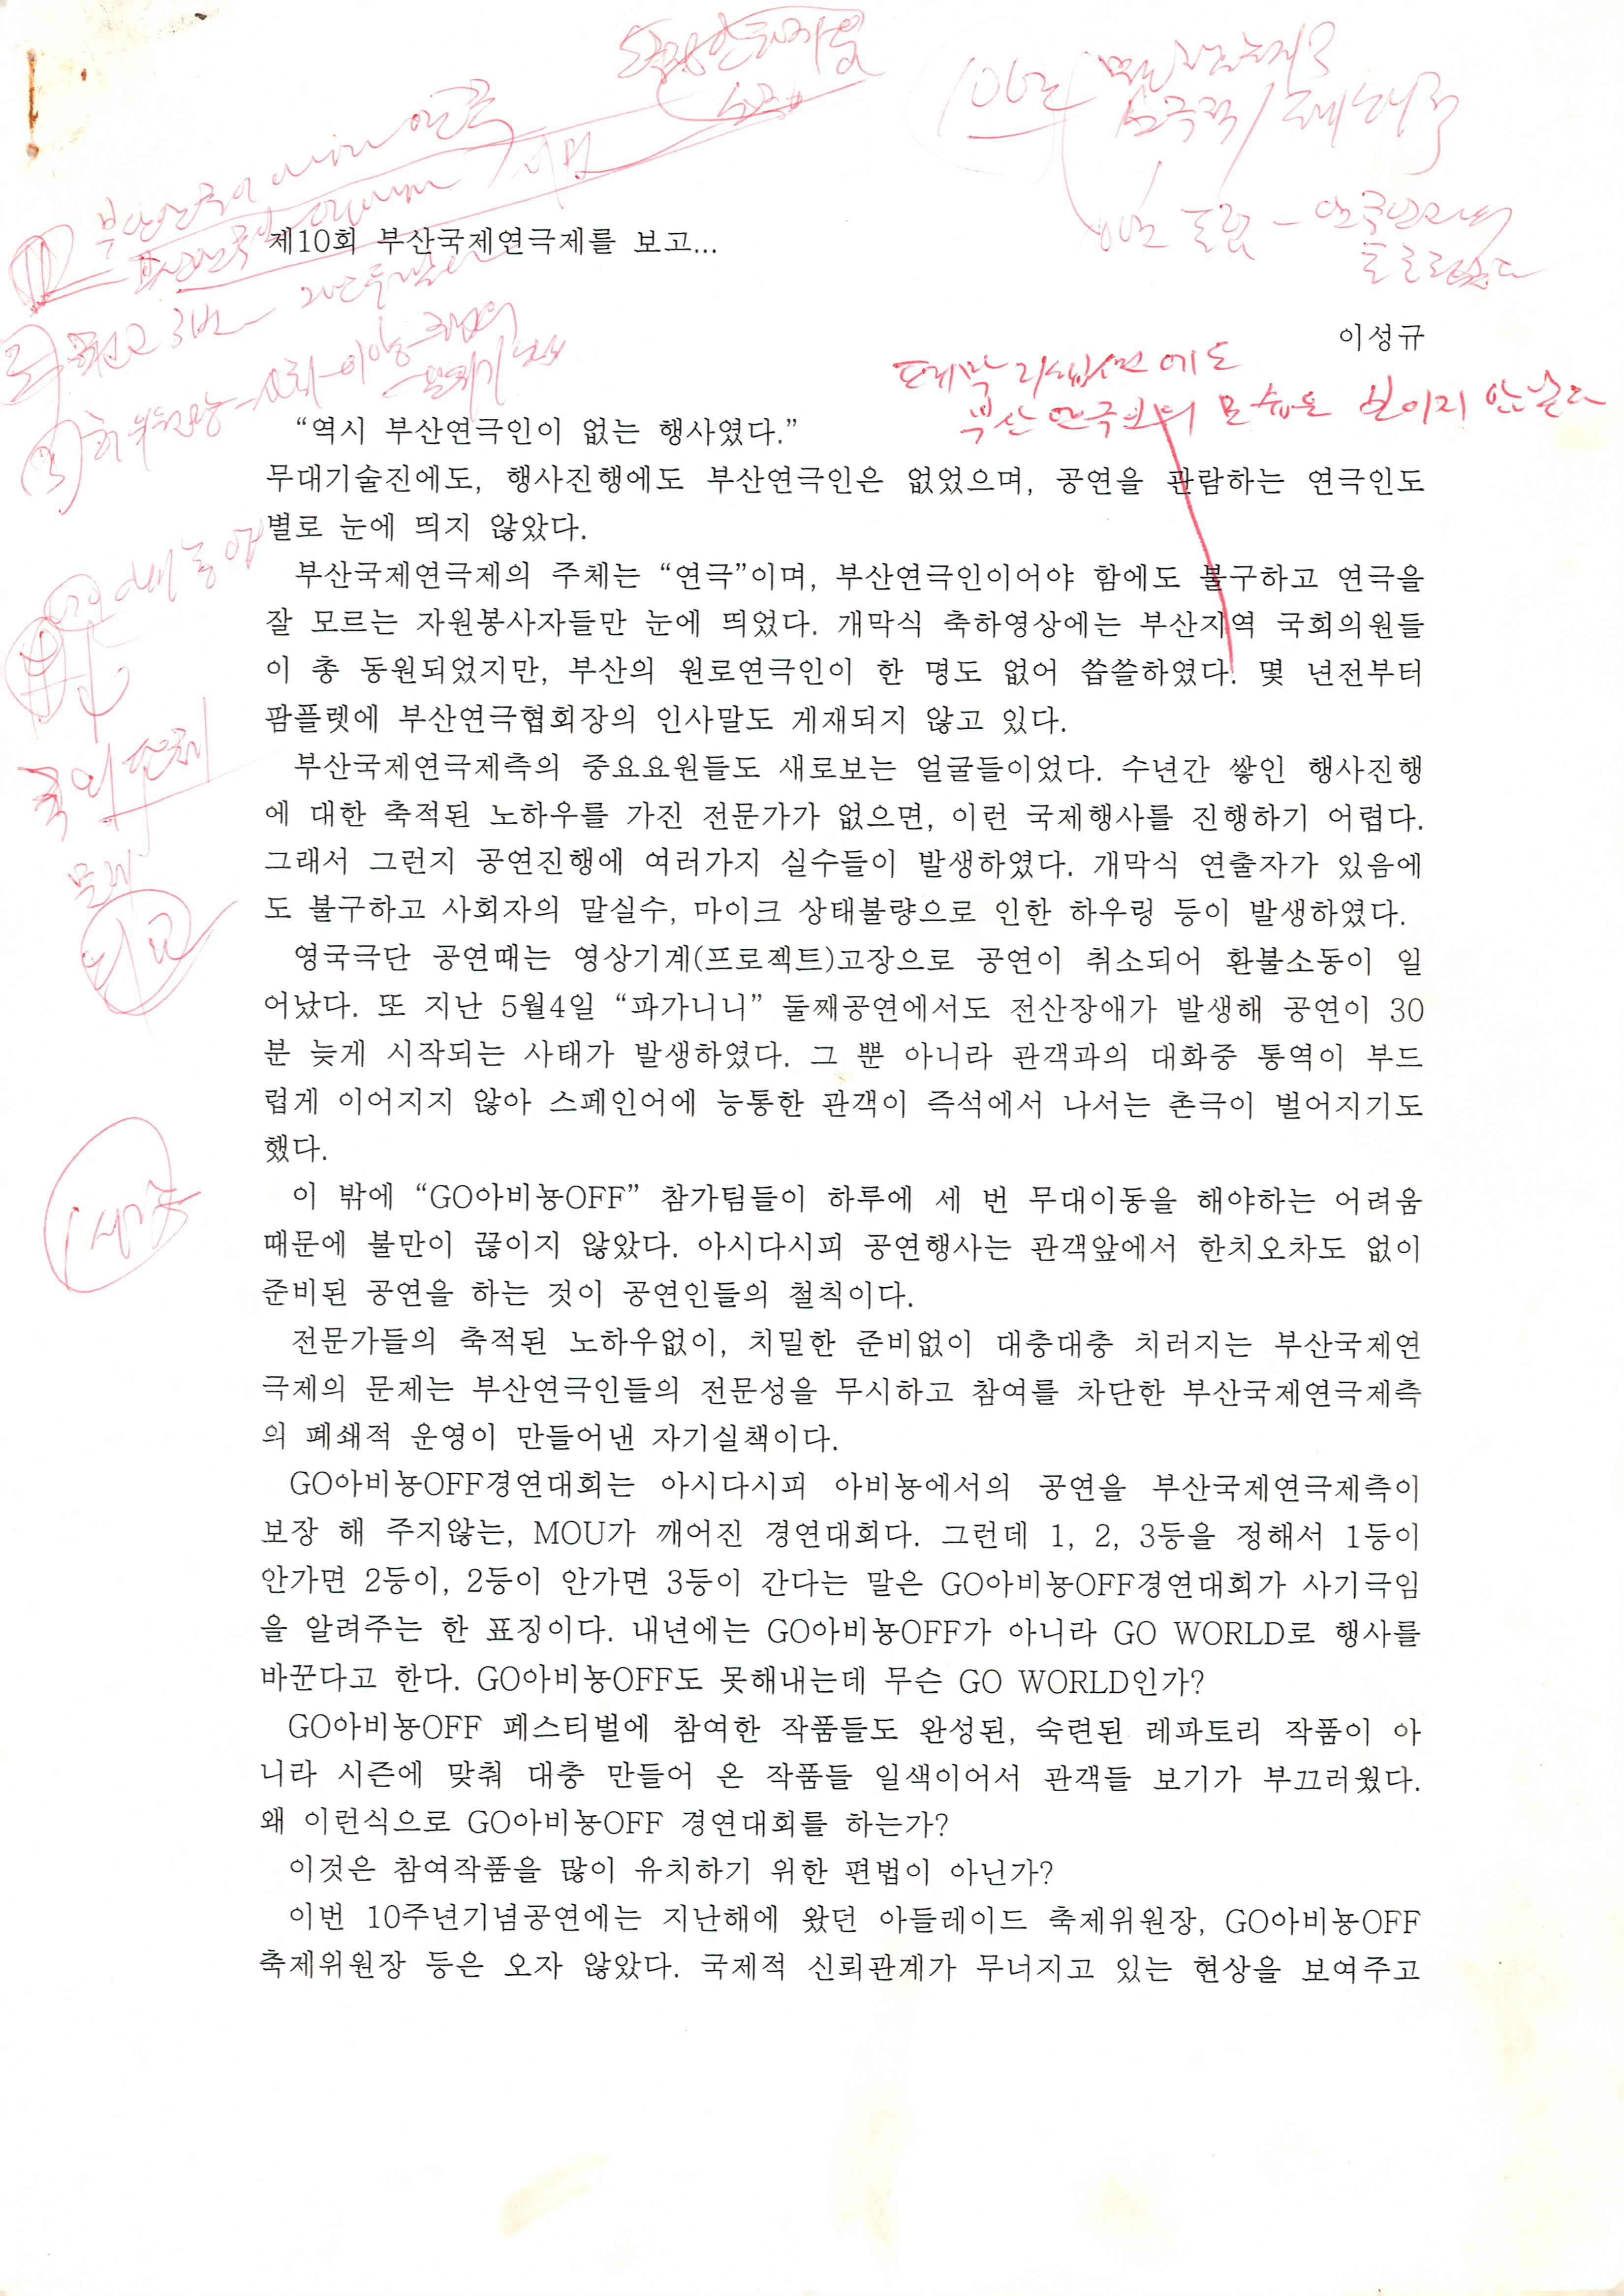 제10회 부산국제연극제를 보고...
이성규
폐막 리셉션에도
부산연극인의 모습은 보이지 않는다
“역시 부산연극인이 없는 행사였다.”
무대기술진에도, 행사진행에도 부산연극인은 없었으며, 공연을 관람하는 연극인도
별로 눈에 띄지 않았다.
부산국제연극제의 주체는 “연극”이며, 부산연극인이어야 함에도 불구하고 연극을
잘 모르는 자원봉사자들만 눈에 띄었다. 개막식 축하영상에는 부산지역 국회의원들
이 총 동원되었지만, 부산의 원로연극인이 한 명도 없어 씁쓸하였다. 몇 년전부터
팜플렛에 부산연극협회장의 인사말도 게재되지 않고 있다.
부산국제연극제측의 중요요원들도 새로보는 얼굴들이었다. 수년간 쌓인 행사진행
에 대한 축적된 노하우를 가진 전문가가 없으면, 이런 국제행사를 진행하기 어렵다.
그래서 그런지 공연진행에 여러가지 실수들이 발생하였다. 개막식 연출자가 있음에
도 불구하고 사회자의 말실수, 마이크 상태불량으로 인한 하우링 등이 발생하였다.
영국극단 공연때는 영상기계(프로젝트)고장으로 공연이 취소되어 환불소동이 일
어났다. 또 지난 5월4일 “파가니니” 둘째공연에서도 전산장애가 발생해 공연이 30
분 늦게 시작되는 사태가 발생하였다. 그 뿐 아니라 관객과의 대화중 통역이 부드
럽게 이어지지 않아 스페인어에 능통한 관객이 즉석에서 나서는 촌극이 벌어지기도
했다.
이 밖에 “GO아비뇽OFF” 참가팀들이 하루에 세 번 무대이동을 해야하는 어려움
때문에 불만이 끊이지 않았다. 아시다시피 공연행사는 관객앞에서 한치오차도 없이
준비된 공연을 하는 것이 공연인들의 철칙이다.
전문가들의 축적된 노하우없이, 치밀한 준비없이 대충대충 치러지는 부산국제연
극제의 문제는 부산연극인들의 전문성을 무시하고 참여를 차단한 부산국제연극제측
의 폐쇄적 운영이 만들어낸 자기실책이다.
GO아비뇽OFF경연대회는 아시다시피 아비뇽에서의 공연을 부산국제연극제측이
보장 해 주지않는, MOU가 깨어진 경연대회다. 그런데 1, 2, 3등을 정해서 1등이
안가면 2등이, 2등이 안가면 3등이 간다는 말은 GO아비뇽OFF경연대회가 사기극임
을 알려주는 한 표징이다. 내년에는 GO아비뇽OFF가 아니라 GO WORLD로 행사를
바꾼다고 한다. GO아비뇽OFF도 못해내는데 무슨 GO WORLD인가?
GO아비뇽OFF 페스티벌에 참여한 작품들도 완성된, 숙련된 레파토리 작품이 아
니라 시즌에 맞춰 대충 만들어 온 작품들 일색이어서 관객들 보기가 부끄러웠다.
왜 이런식으로 GO아비뇽OFF 경연대회를 하는가?
이것은 참여작품을 많이 유치하기 위한 편법이 아닌가?
이번 10주년기념공연에는 지난해에 왔던 아들레이드 축제위원장, GO아비뇽OFF
축제위원장 등은 오자 않았다. 국제적 신뢰관계가 무너지고 있는 현상을 보여주고